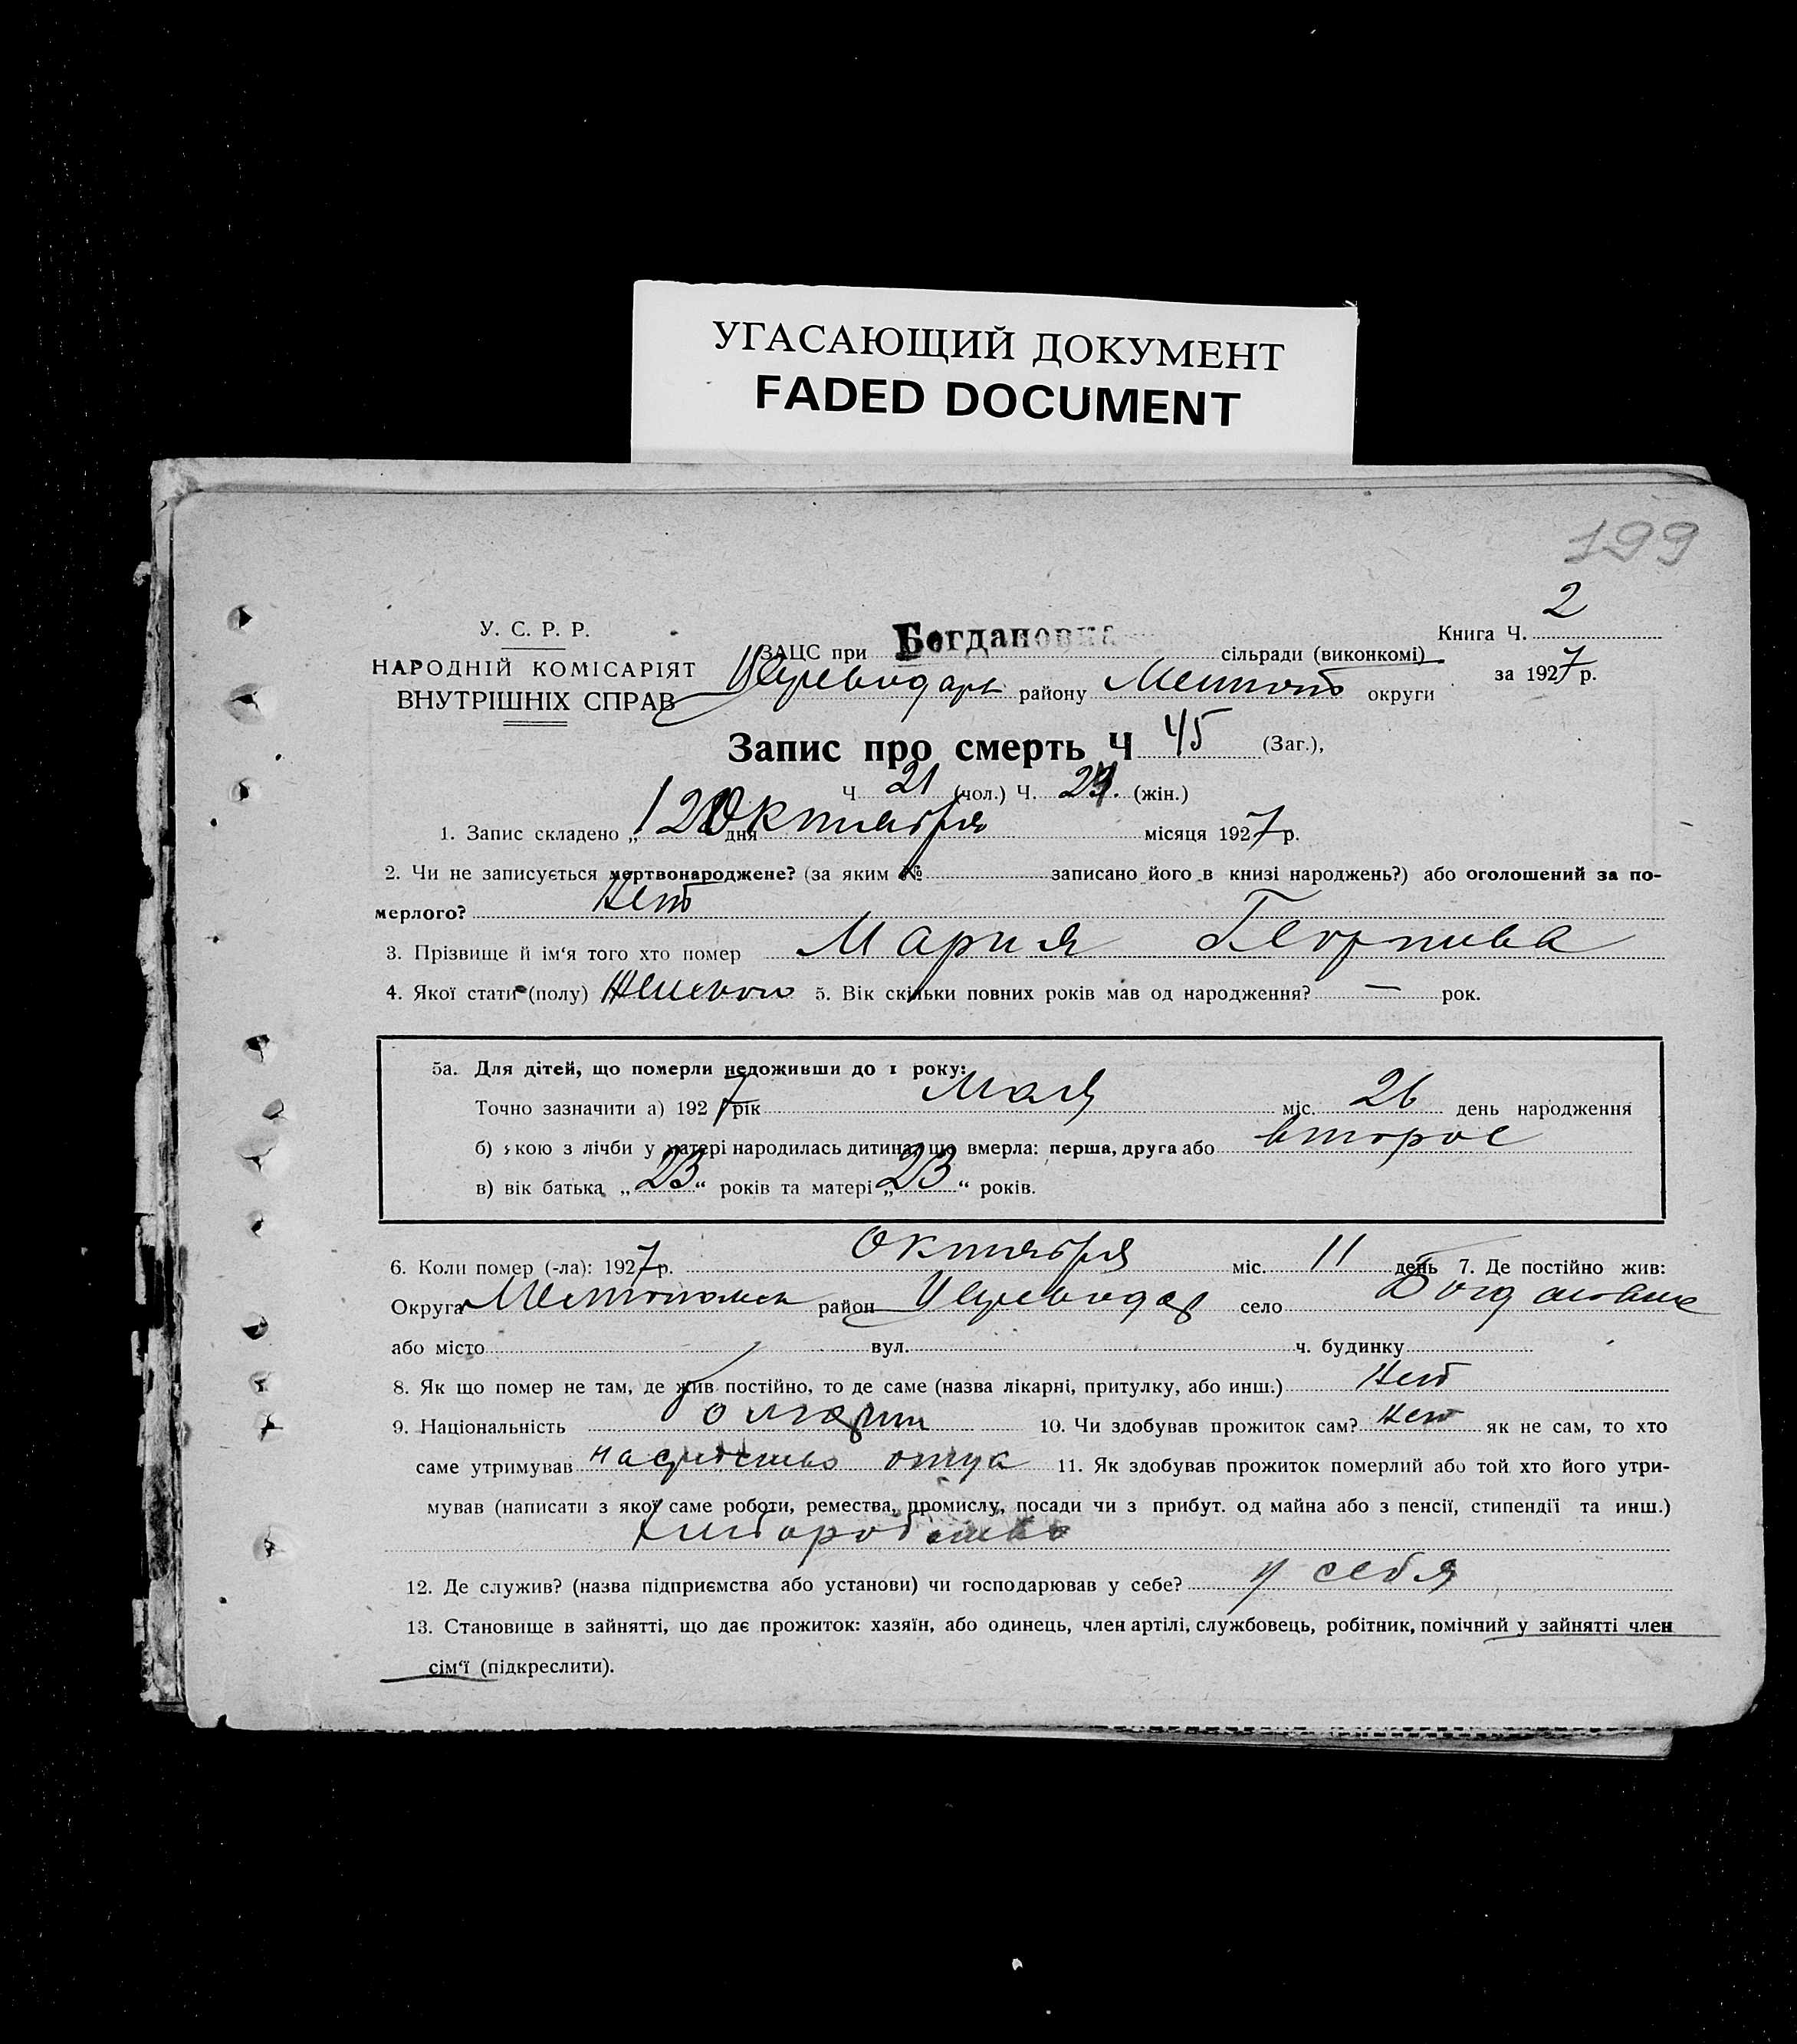 УГАСАЮЩИЙ ДОКУМЕНТ
FADED DOCUMENT
199
У. С. Р. Р.
НАРОДНІЙ КОМІСАРІЯТ
ВНУТРІШНІХ СПРАВ
ЗАЦС при Богдановка сільради (виконкомі)
району округи
Книга Ч. 2
за 1927 р.
Запис про смерть Ч 45 (Заг.),
Ч 21 (чол.) Ч. 24. (жін.)
1. Запис складено „12 дня Октября місяця 1927 р.
2. Чи не записується мертвонароджене? (за яким № записано його в книзі народжень?) або оголошений за по-
мерлого? Нет
3. Прізвище й ім‘я того хто помер Мария Георгиева
4. Якої статі (полу) Женского 5. Вік скільки повних років мав од народження? — рок.
5а. Для дітей, що померли недоживши до 1 року:
Точно зазначити а) 1927 рік Мая міс. 26 день народження
б) якою з лічби у матері народилась дитина, що вмерла: перша, друга або второе
в) вік батька „23“ років та матері „23“ років.
6. Коли помер (-ла): 1927 р. Октября міс. 11 день 7. Де постійно жив:
Округа район село Богдановке
або місто вул. ч. будинку
8. Як що помер не там, де жив постійно, то де саме (назва лікарні, притулку, або инш.) Нет
9. Національність болгарин 10. Чи здобував прожиток сам? Нет як не сам, то хто
саме утримував отца 11. Як здобував прожиток померлий або той хто його утри-
мував (написати з якої саме роботи, ремества, промислу, посади чи з прибут. од майна або з пенсії, стипендії та инш.)
хлиборобство
12. Де служив? (назва підприємства або установи) чи господарював у себе? у себя
13. Становище в зайнятті, що дає прожиток: хазяїн, або одинець, член артілі, службовець, робітник, помічний у зайнятті член
сім‘ї (підкреслити).